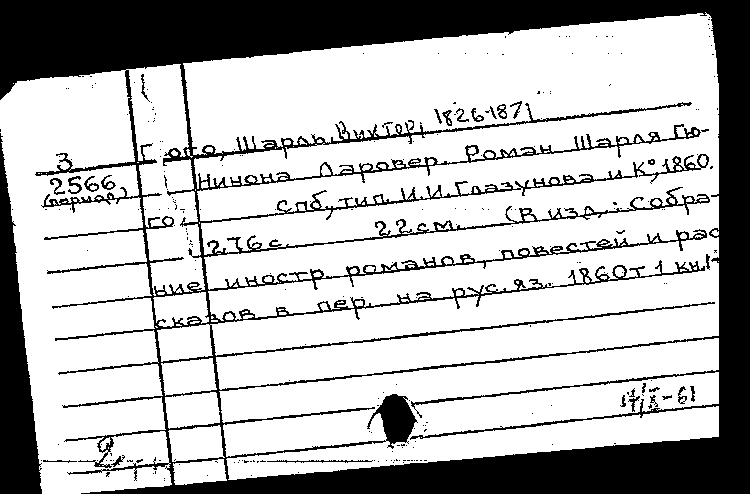 Гюго, Шарль Виктор, 1826-1871
З
2566
(период.)
Нинона Ларовер. Роман Шарля Гю-
го.
Спб, тип. И.И. Глазунова и К°, 1860.
276 с. 22 см. (В изд.: Собра-
ние иностр. романов, повестей и рас
сказов в пер. на рус. яз. 1860 т 1 кн.1-
17/X-61